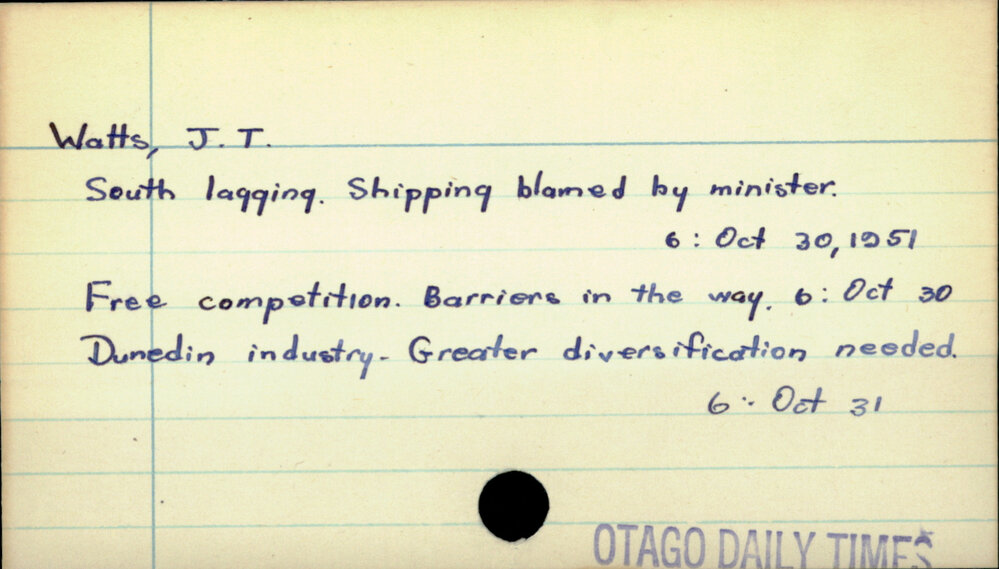 Watts, J. T.
South lagging. Shipping blamed by minister.
6: Oct 30, 1951
Free competition. Barriers in the way. 6: Oct 30
Dunedin industry. Greater diversification needed.
6: Oct 31
OTAGO DAILY TIMES